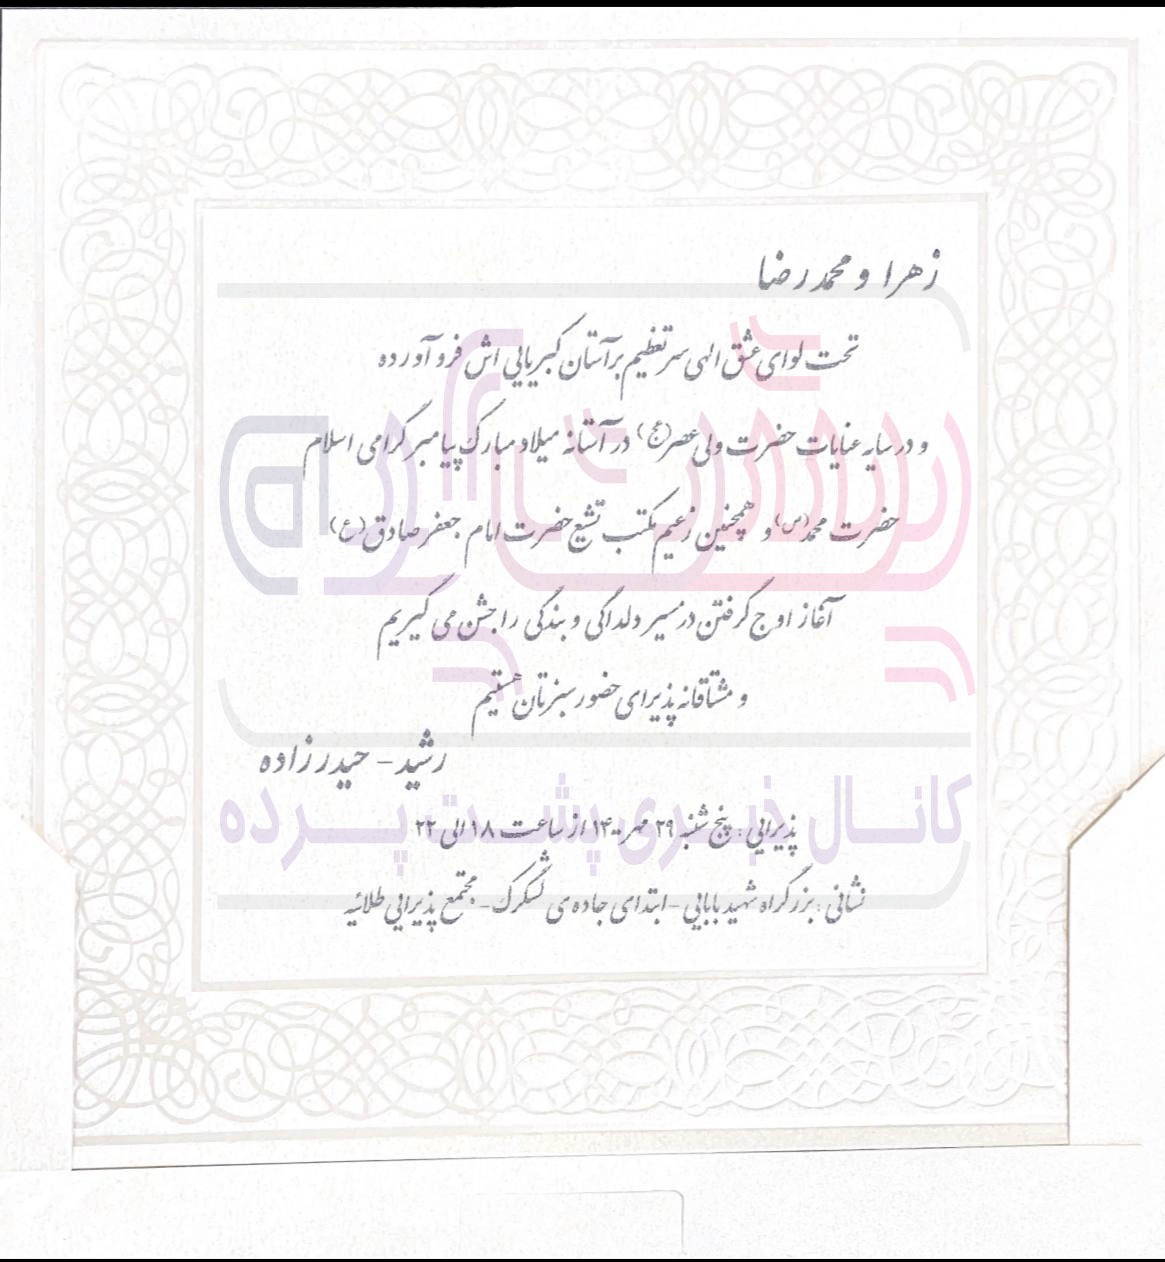 زهرا و محمدرضا
تحت لوای عشق الهی سر تعظیم بر آستان کبریایی اش فرو آورده
و در سایه عنایات حضرت ولی عصر(عج) در آستانه میلاد مبارک پیامبر گرامی اسلام
حضرت محمد(ص) و همچنین زعیم مکتب تشیع حضرت امام جعفر صادق(ع)
آغاز اوج گرفتن در مسیر دلدادگی و بندگی را جشن می گیریم
و مشتاقانه پذیرای حضور سبزتان هستیم
رشید - حیدرزاده
کانال خبری پشت پرده
پذیرایی : پنج شنبه ۲۹ مهر ۱۴۰۰ از ساعت ۱۸ الی ۲۲
نشانی : بزرگراه شهید بابایی - ابتدای جاده ی لشگرک - مجتمع پذیرایی طلائیه